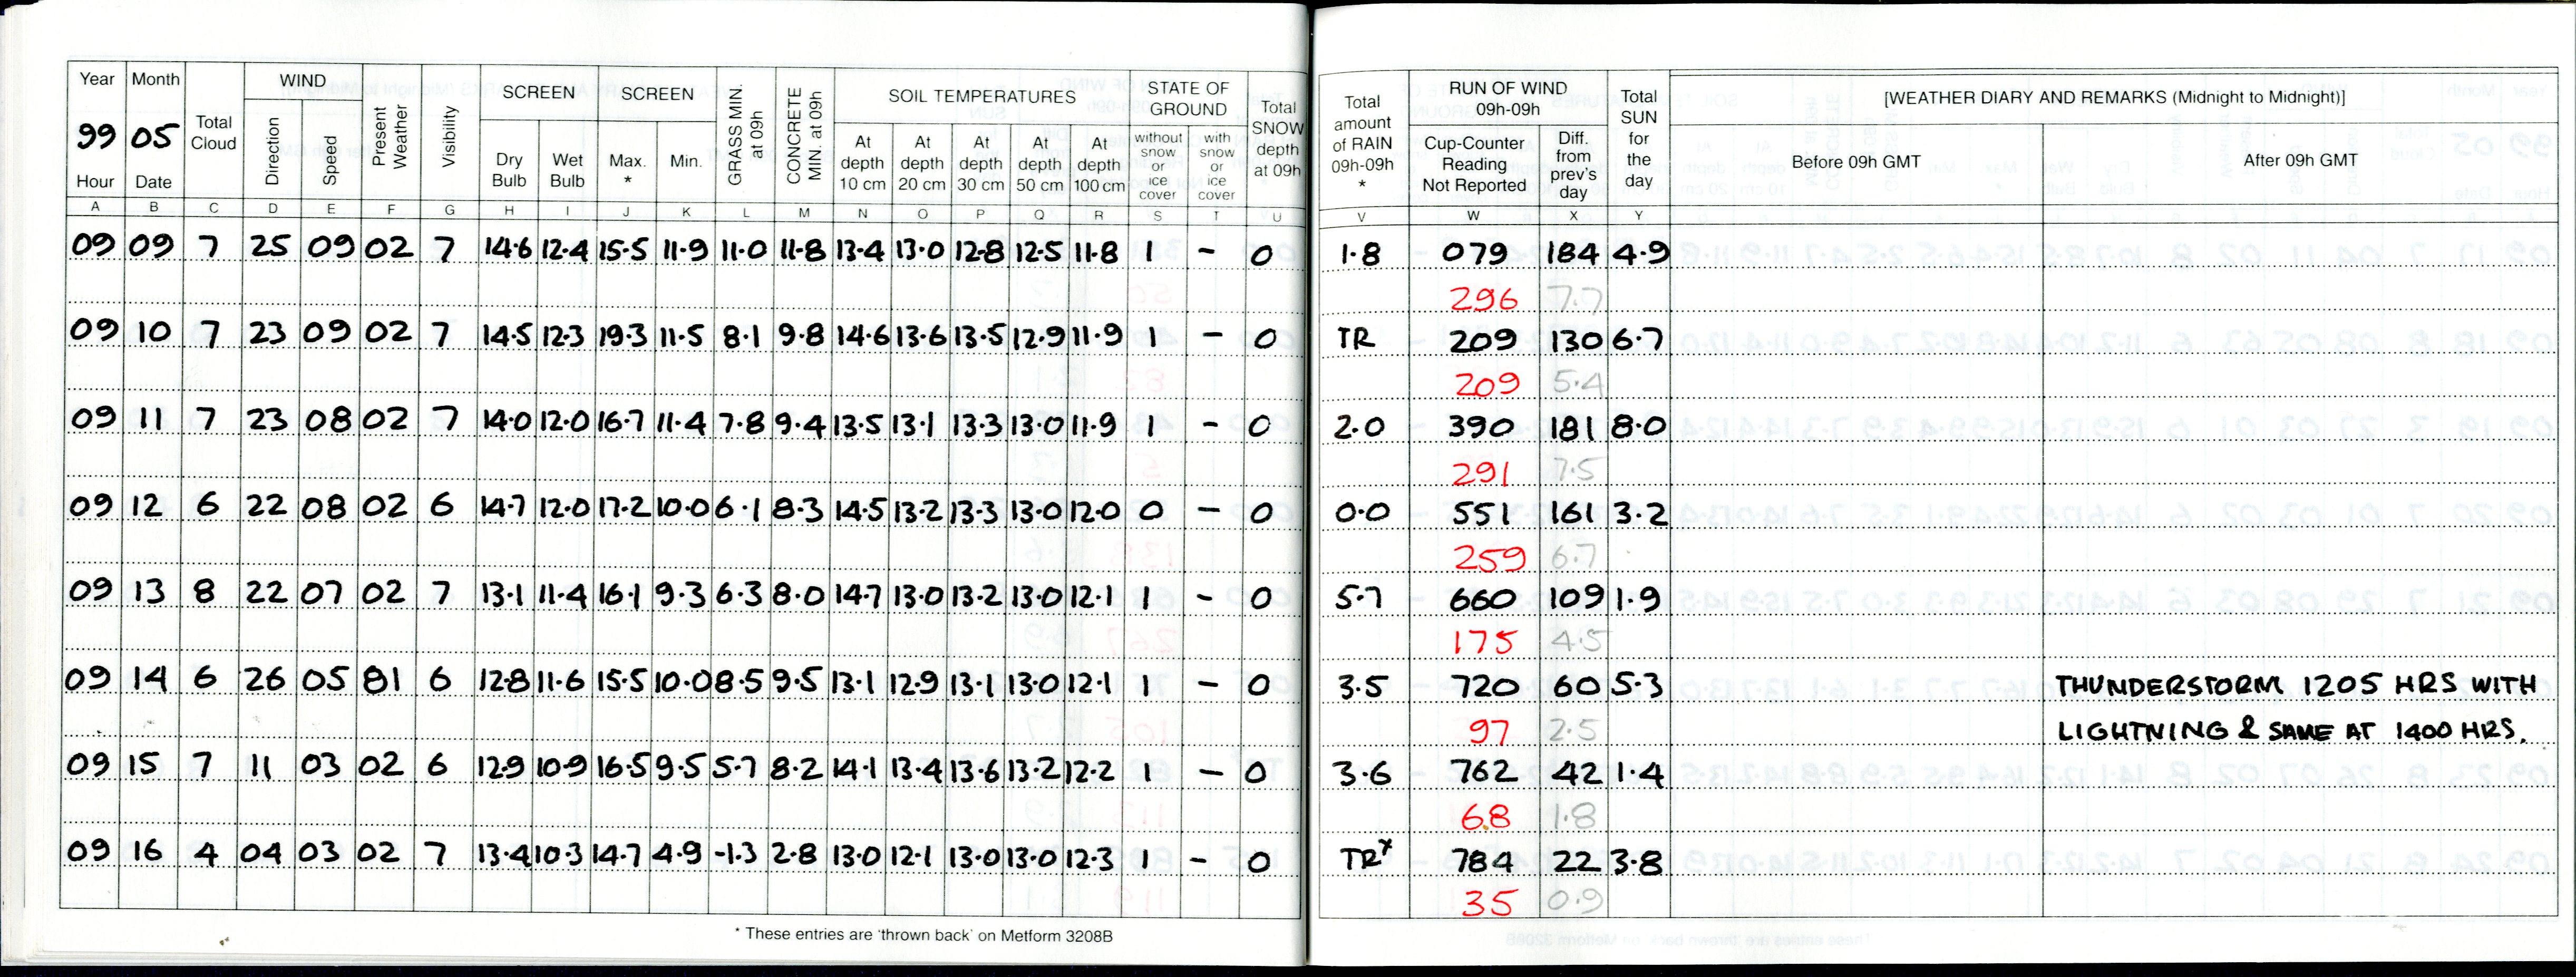 Year Month Total Cloud WIND Present Weather Visibility SCREEN SCREEN GRASS MIN. at 09h CONCRETE MIN. at 09h SOIL TEMPERATURES STATE OF GROUND Total SNOW depth at 09h Total amount of RAIN 09h-09h * RUN OF WIND 09h-09h Total SUN for the day [WEATHER DIARY AND REMARKS (Midnight to Midnight)]
99 05 Direction Speed Dry Bulb Wet Bulb Max. * Min. At depth 10 cm At depth 20 cm At depth 30 cm At depth 50 cm At depth 100 cm without snow or ice cover with snow or ice cover Cup-Counter Reading Not Reported Diff. from prev's day Before 09h GMT After 09h GMT
Hour Date
A B C D E F G H I J K L M N O P Q R S T U V W X Y
09 09 7 25 09 02 7 14.6 12.4 15.5 11.9 11.0 11.8 13.4 13.0 12.8 12.5 11.8 1 - 0 1.8 079 184 4.9
296 7.7
09 10 7 23 09 02 7 14.5 12.3 19.3 11.5 8.1 9.8 14.6 13.6 13.5 12.9 11.9 1 - 0 TR 209 130 6.7
209 5.4
09 11 7 23 08 02 7 14.0 12.0 16.7 11.4 7.8 9.4 13.5 13.1 13.3 13.0 11.9 1 - 0 2.0 390 181 8.0
291 7.5
09 12 6 22 08 02 6 14.7 12.0 17.2 10.0 6.1 8.3 14.5 13.2 13.3 13.0 12.0 0 - 0 0.0 551 161 3.2
259 6.7
09 13 8 22 07 02 7 13.1 11.4 16.1 9.3 6.3 8.0 14.7 13.0 13.2 13.0 12.1 1 - 0 5.7 660 109 1.9
175 4.5
09 14 6 26 05 81 6 12.8 11.6 15.5 10.0 8.5 9.5 13.1 12.9 13.1 13.0 12.1 1 - 0 3.5 720 60 5.3 THUNDERSTORM 1205 HRS WITH
97 2.5 LIGHTNING & SAME AT 1400 HRS.
09 15 7 11 03 02 6 12.9 10.9 16.5 9.5 5.7 8.2 14.1 13.4 13.6 13.2 12.2 1 - 0 3.6 762 42 1.4
68 1.8
09 16 4 04 03 02 7 13.4 10.3 14.7 4.9 -1.3 2.8 13.0 12.1 13.0 13.0 12.3 1 - 0 TR* 784 22 3.8
35 0.9
* These entries are 'thrown back' on Metform 3208B